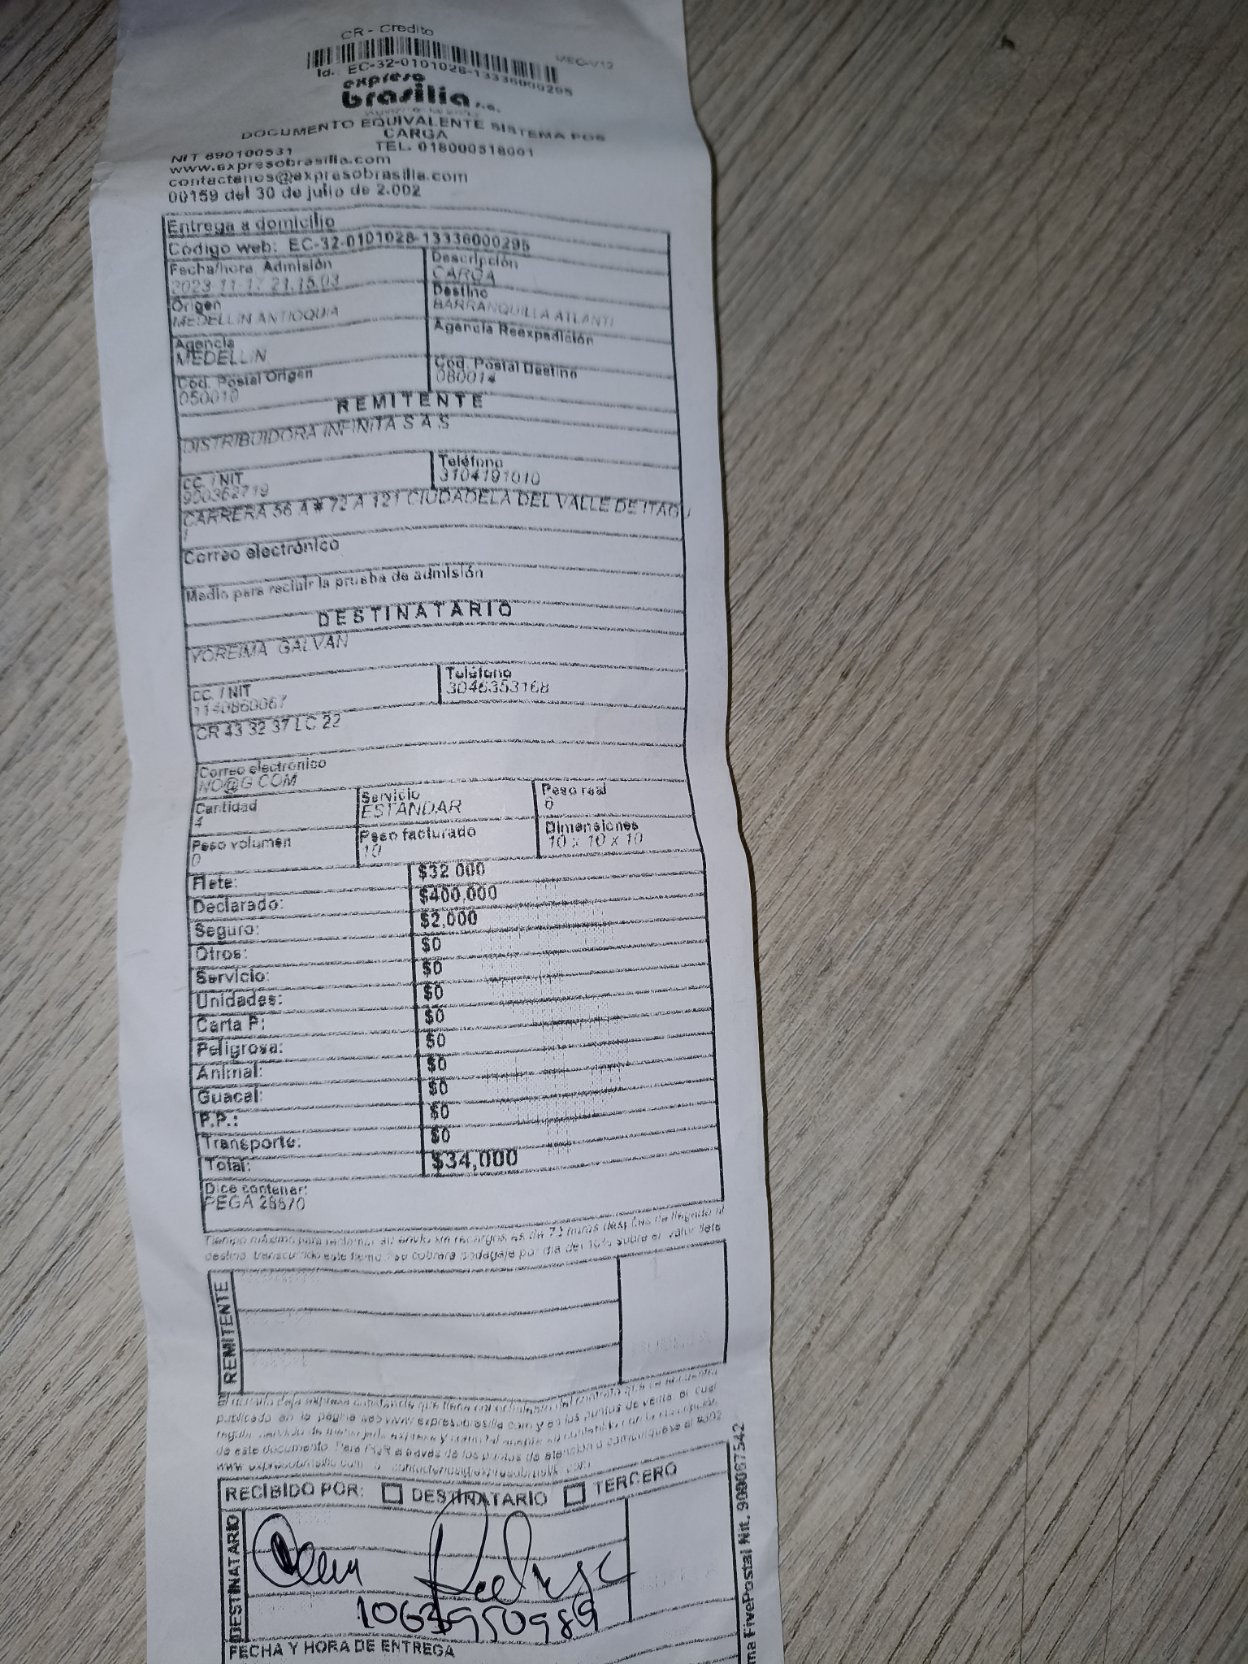 CR - Credito
Id.: EC-32-0101028-13336000295
expreso
brasilia s.a.
DOCUMENTO EQUIVALENTE SISTEMA POS
CARGA
NIT 890100531 TEL. 018000518001
www.expresobrasilia.com
contactenos@expresobrasilia.com
00159 del 30 de julio de 2.002
Entrega a domicilio
Código web: EC-32-0101028-13336000295
Fecha/hora Admisión Descripción
2023-11-17 21:15:03 CARGA
Origen Destino
MEDELLIN ANTIOQUIA BARRANQUILLA ATLANTI
Agencia Agencia Reexpedición
MEDELLIN
Cód. Postal Origen Cód. Postal Destino
050010 080014
REMITENTE
DISTRIBUIDORA INFINITA S A S
CC. / NIT Teléfono
900362719 3104191010
CARRERA 56 A # 72 A 121 CIUDADELA DEL VALLE DE ITAGU
I
Correo electrónico
Medio para recibir la prueba de admisión
DESTINATARIO
YOREIMA GALVAN
CC. / NIT Teléfono
1140860067 3046353168
CR 43 32 37 LC 22
Correo electrónico
NO@G.COM
Cantidad Servicio Peso real
4 ESTANDAR 0
Peso volumen Peso facturado Dimensiones
0 10 10 x 10 x 10
Flete: $32.000
Declarado: $400,000
Seguro: $2,000
Otros: $0
Servicio: $0
Unidades: $0
Carta P: $0
Peligrosa: $0
Animal: $0
Guacal: $0
P.P.: $0
Transporte: $0
Total: $34,000
Dice contener:
PEGA 28670
Tiempo máximo para reclamar su envío sin recargos es de 72 horas después de llegado al
destino, transcurrido este tiempo se cobrará bodegaje por día del 10% sobre el valor flete
REMITENTE
publicado en la página web www.expresobrasilia.com y en los puntos de venta, el cual
de este documento. Para PQR a través de los puntos de atención o comuníquese al
RECIBIDO POR: DESTINATARIO TERCERO
DESTINATARIO
1063950989
FECHA Y HORA DE ENTREGA
FivePostal Nit. 900087542